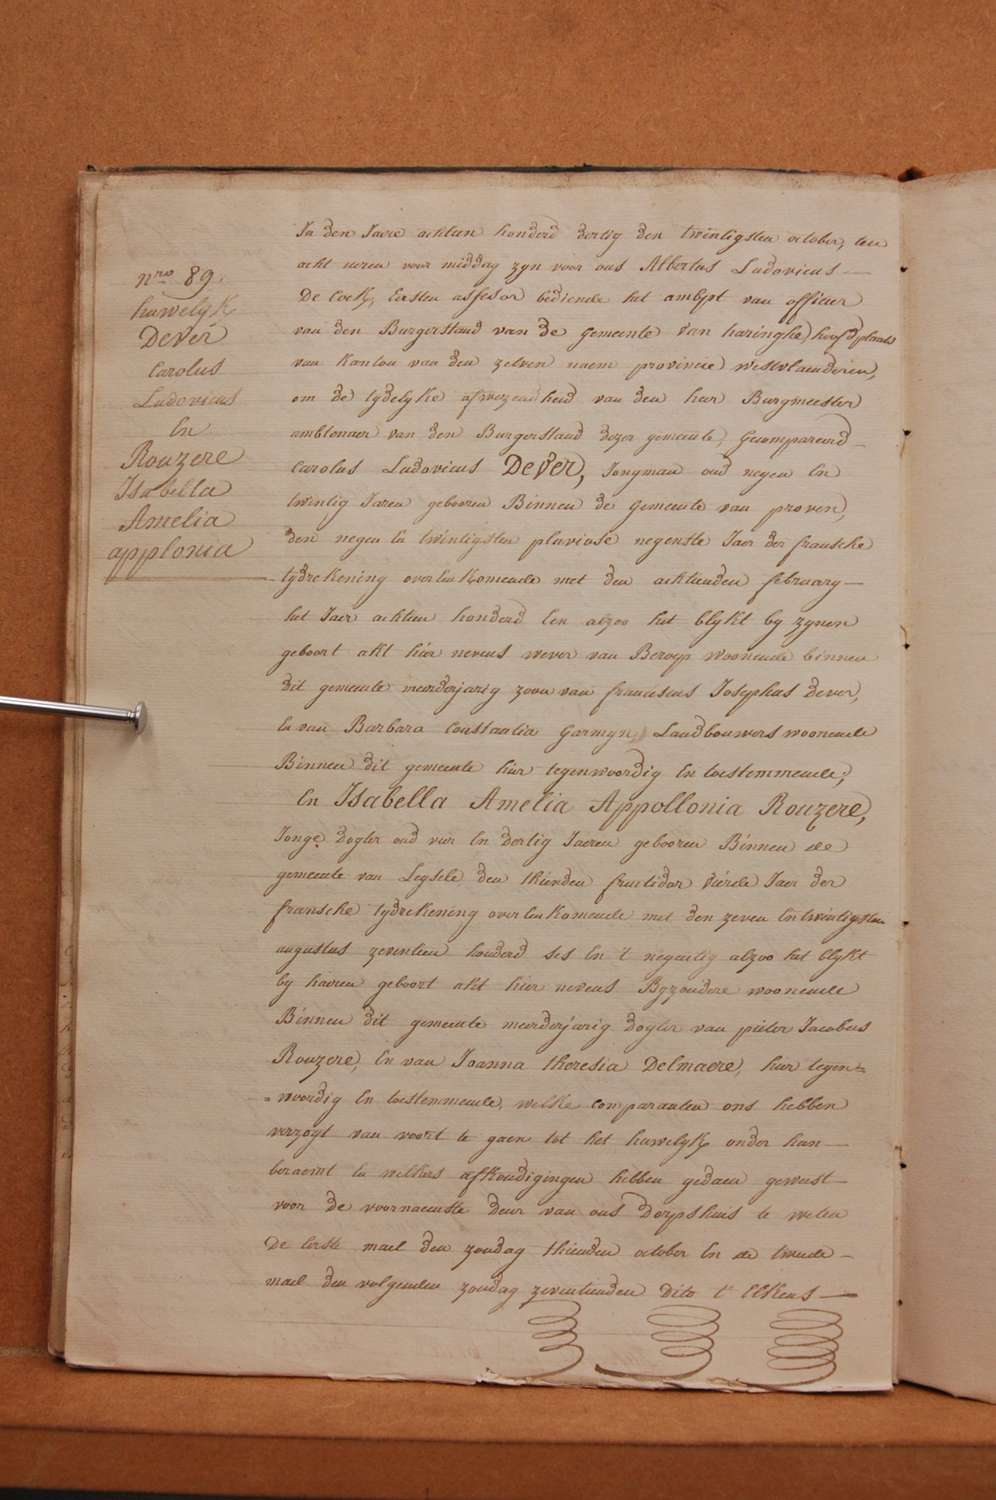 nro 89.
huwelyk
Dever
Carolus
Ludovicus
En
Rouzere
Isabella
Amelia
applonia
In den Jaere achtien honderd dertig den twintigsten october, ten
acht uren voor middag zyn voor ons Albertus Ludovicus
De Cock, Eersten assesor bediende het ambpt van officier
van den Burgerstand van de gemeente van haringhe, hoofdplaats
van kanton van den zelven naem provincie westvlaenderen,
om de tydelyke afwezendheid van den heer Burgmeester
ambtenaer van den Burgerstand dezer gemeente, Gecompareerd
Carolus Ludovicus Dever, Jongman oud negen En
twintig Jaren gebooren Binnen de gemeente van proven,
den negen En twintigsten pluviose negenste Jaer der fransche
tydrekening over Een Komende met den achtienden february
het Jaer achtien honderd Een alzoo het blykt by zynen
geboort akt hier nevens wever van Beroep woonende binnen
dit gemeente meerderjarig zoon van franciscus Josephus Dever,
En van Barbara Constantia Garmyn, Landbouwers woonende
Binnen dit gemeente hier tegenwoordig En toestemmende;
En Isabella Amelia Appollonia Rouzere,
Jonge Dogter oud vier En dertig Jaeren gebooren Binnen de
gemeente van Leysele den thienden fructidor vierde Jaer der
fransche tydrekening over Een Komende met den zeven En twintigsten
augustus zeventien honderd ses En 't negentig alzoo het blykt
by haeren geboort akt hier nevens Byzondere woonende
Binnen dit gemeente meerderjarig dogter van pieter Jacobus
Rouzere, En van Joanna theresia Delmaere, hier tegen=
=woordig En toestemmende, welke comparanten ons hebben
verzogt van voort te gaen tot het huwelyk onder hun
beraemt En welkers afkondigingen hebben gedaen geweest
voor de voornaemste deur van ons Dorpshuis te weten
De Eerste mael den zondag thienden october En de tweede
mael den volgenden zondag zeventienden dito t' Elkens